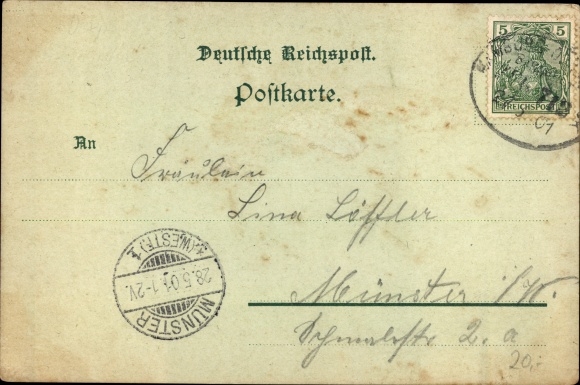 5 5
REICHSPOST
HAMBURG
01
Deutsche Reichspost.
Postkarte.
An
Fräulein
Lina Löffler
Münster i/W.
2. a
20,-
MÜNSTER
28.5.01. 1-2V.
*(WESTF.) 1